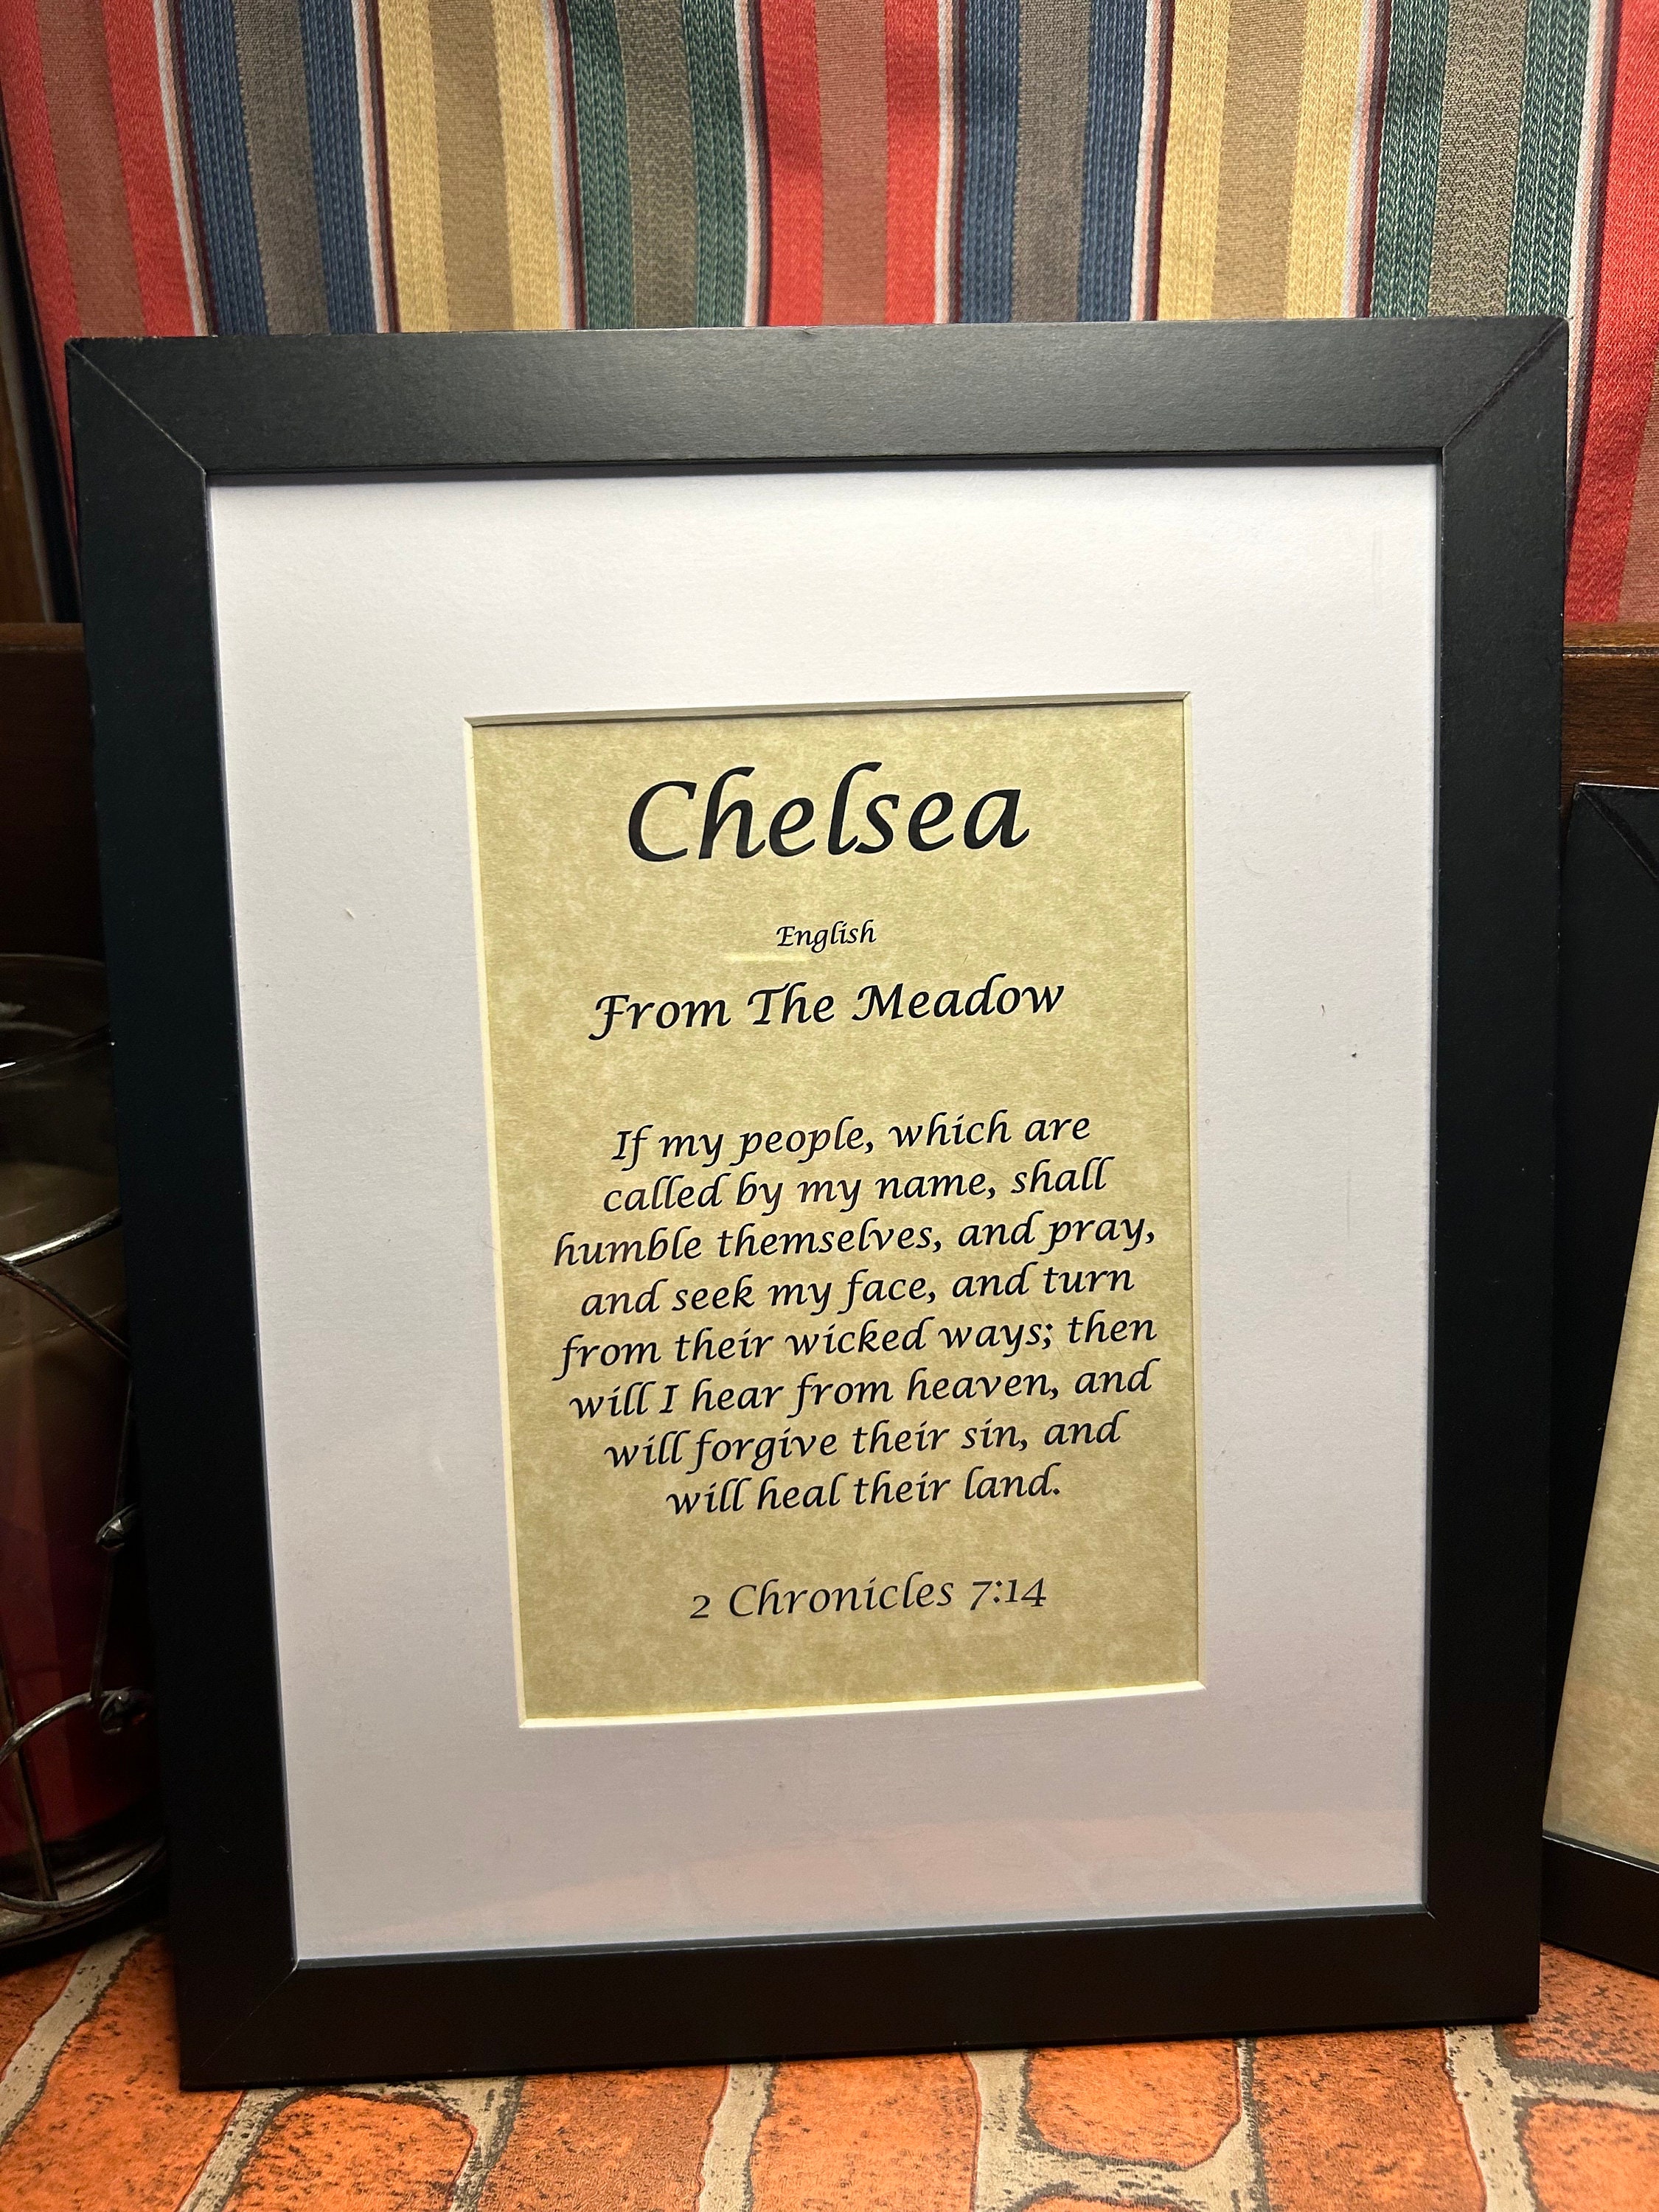 Chelsea
English
From The Meadow
If my people, which are
called by my name, shall
humble themselves, and pray,
and seek my face, and turn
from their wicked ways; then
will I hear from heaven, and
will forgive their sin, and
will heal their land.
2 Chronicles 7:14